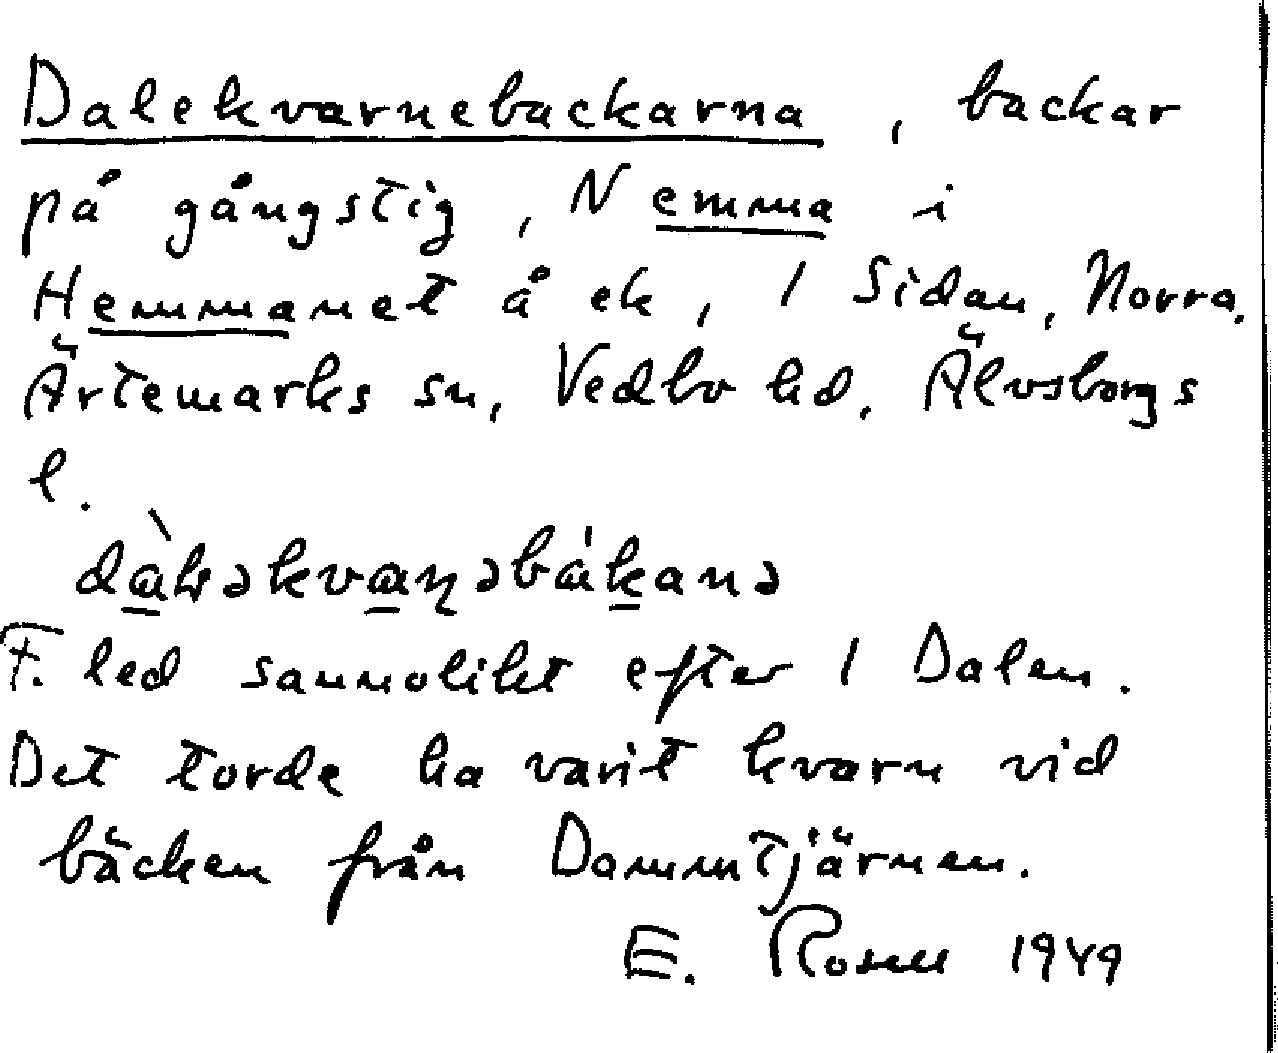 Dalekvarnebackarna, backar
på gångstig, N emma i
Hemmanet å ek, 1 Sidan, Norra,
Ärtemarks sn, Vedbo hd, Älvsborgs
l.
F. led sannolikt efter 1 Dalen.
Det torde ha varit kvarn vid
bäcken från Dammtjärnen.
E. Rosell 1949